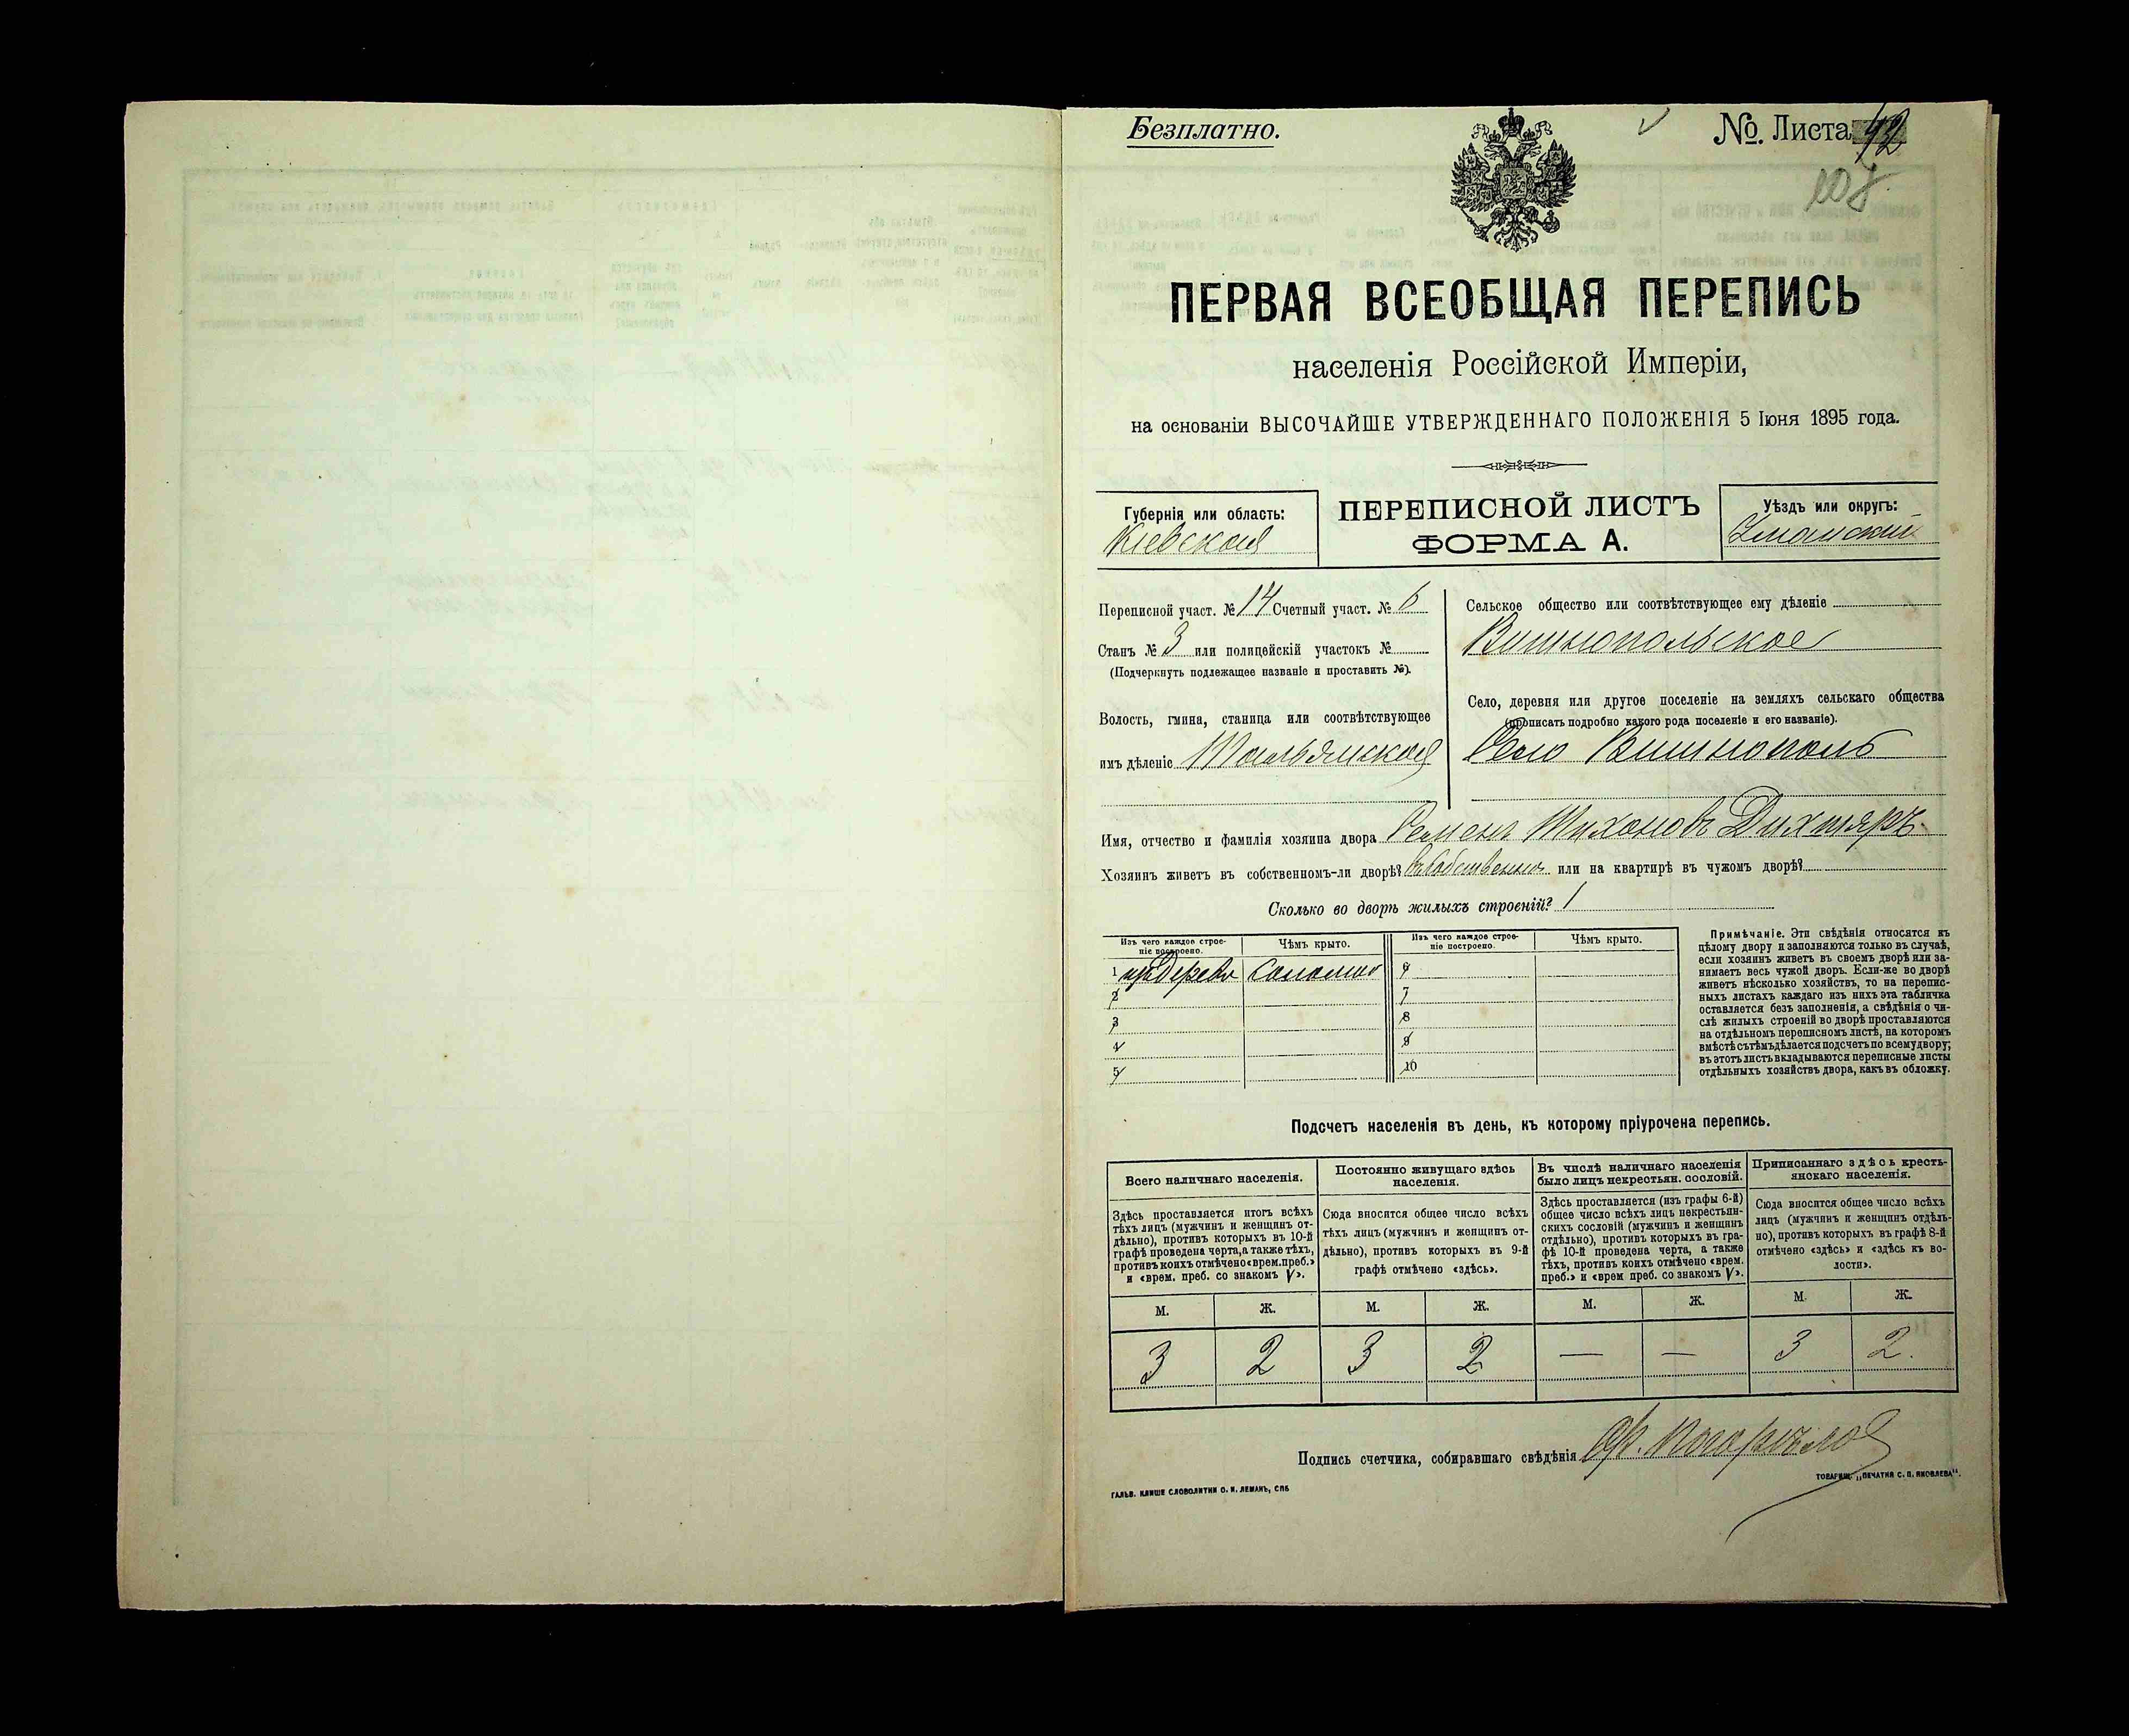 Безплатно.
№. Листа 42
108
ПЕРВАЯ ВСЕОБЩАЯ ПЕРЕПИСЬ
населенія Россійской Имперіи,
на основаніи ВЫСОЧАЙШЕ УТВЕРЖДЕННАГО ПОЛОЖЕНІЯ 5 Іюня 1895 года.
Губернія или область:
Кіевская
ПЕРЕПИСНОЙ ЛИСТЪ
ФОРМА А.
Уѣздъ или округъ:
Уманскій
Переписной участ. № 14 Счетный участ. № 6
Станъ № 3 или полицейскій участокъ №
(Подчеркнуть подлежащее названіе и проставить №).
Волость, гмина, станица или соотвѣтствующее
имъ дѣленіе Тальянская
Сельское общество или соотвѣтствующее ему дѣленіе
Вишнопольское
Село, деревня или другое поселеніе на земляхъ сельскаго общества
(прописать подробно какого рода поселеніе и его названіе).
Село Вишнополь
Имя, отчество и фамилія хозяина двора Семенъ Тихоновъ Дихтяръ
Хозяинъ живетъ въ собственномъ-ли дворѣ? въ собственномъ или на квартирѣ въ чужомъ дворѣ?
Сколько во дворѣ жилыхъ строеній? 1
Изъ чего каждое строе-
ніе построено.
Чѣмъ крыто.
Изъ чего каждое строе-
ніе построено.
Чѣмъ крыто.
1 изъ дерева соломою 6
2 7
3 8
4 9
5 10
Примѣчаніе. Эти свѣдѣнія относятся къ
цѣлому двору и заполняются только въ случаѣ,
если хозяинъ живетъ въ своемъ дворѣ или за-
нимаетъ весь чужой дворъ. Если-же во дворѣ
живетъ нѣсколько хозяйствъ, то на перепис-
ныхъ листахъ каждаго изъ нихъ эта табличка
оставляется безъ заполненія, а свѣдѣнія о чи-
слѣ жилыхъ строеній во дворѣ проставляются
на отдѣльномъ переписномъ листѣ, на которомъ
вмѣстѣ съ тѣмъ дѣлается подсчетъ по всему двору;
въ этотъ листъ вкладываются переписные листы
отдѣльныхъ хозяйствъ двора, какъ въ обложку.
Подсчетъ населенія въ день, къ которому пріурочена перепись.
Всего наличнаго населенія.
Здѣсь проставляется итогъ всѣхъ
тѣхъ лицъ (мужчинъ и женщинъ от-
дѣльно), противъ которыхъ въ 10-й
графѣ проведена черта, а также тѣхъ,
противъ коихъ отмѣчено «врем. преб.»
и «врем. преб. со знакомъ V».
Постоянно живущаго здѣсь
населенія.
Сюда вносится общее число всѣхъ
тѣхъ лицъ (мужчинъ и женщинъ от-
дѣльно), противъ которыхъ въ 9-й
графѣ отмѣчено «здѣсь».
Въ числѣ наличнаго населенія
было лицъ некрестьян. сословій.
Здѣсь проставляется (изъ графы 6-й)
общее число всѣхъ лицъ некрестьян-
скихъ сословій (мужчинъ и женщинъ
отдѣльно), противъ которыхъ въ гра-
фѣ 10-й проведена черта, а также
тѣхъ, противъ коихъ отмѣчено «врем.
преб.» и «врем преб. со знакомъ V».
Приписаннаго здѣсь кресть-
янскаго населенія.
Сюда вносится общее число всѣхъ
лицъ (мужчинъ и женщинъ отдѣль-
но), противъ которыхъ въ графѣ 8-й
отмѣчено «здѣсь» и «здѣсь къ во-
лости».
М. Ж. М. Ж. М. Ж. М. Ж.
3 2 3 2 — — 3 2.
Подпись счетчика, собиравшаго свѣдѣнія
ГАЛЬВ. КЛИШЕ СЛОВОЛИТНИ О. И. ЛЕМАНЪ, СПБ
ТОВАРИЩ. „ПЕЧАТНЯ С. П. ЯКОВЛЕВА“.